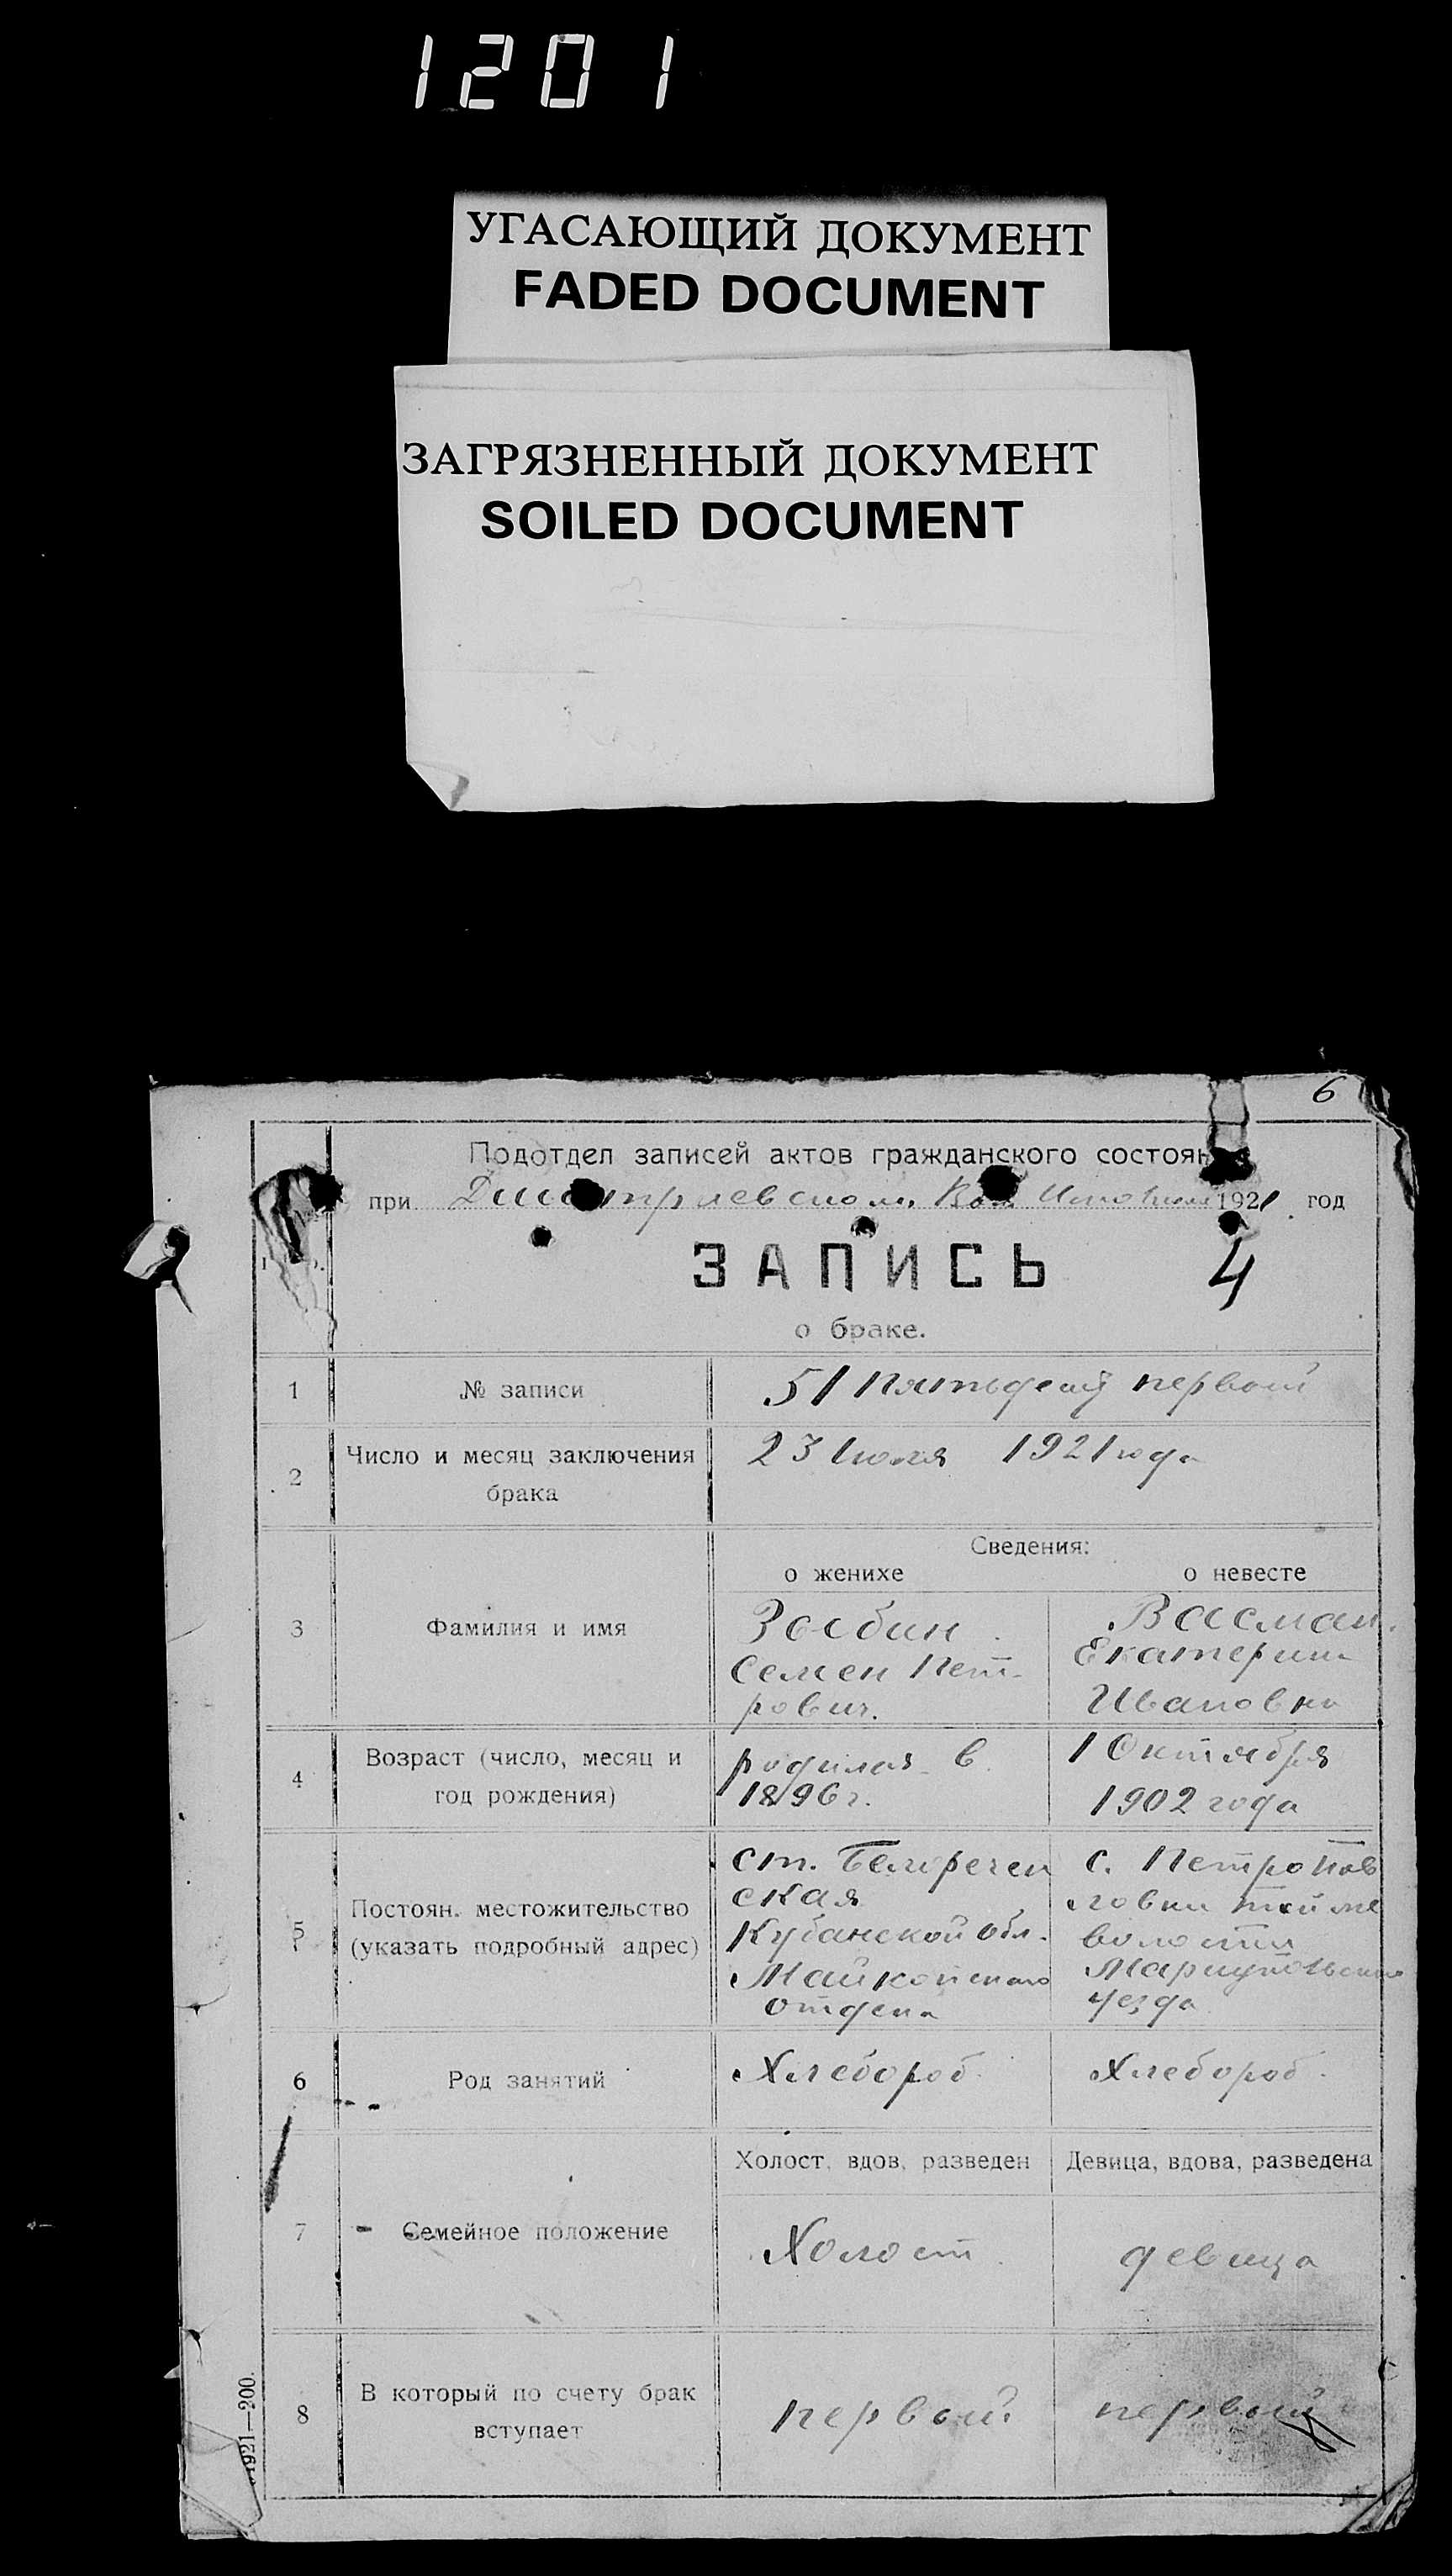 1201
УГАСАЮЩИЙ ДОКУМЕНТ
FADED DOCUMENT
ЗАГРЯЗНЕННЫЙ ДОКУМЕНТ
SOILED DOCUMENT
6
Подотдел записей актов гражданского состоян
при 1921 год
ЗАПИСЬ 4
о браке.
1 № записи 51 первый
2 Число и месяц заключения брака 23 Июля 1921 года
Сведения:
о женихе о невесте
3 Фамилия и имя
Семен Пет-
рович.
Вассман
Екатерина
Ивановна
4 Возраст (число, месяц и
год рождения)
родился в
1896 г.
1 Октября
1902 года
5 Постоян. местожительство
(указать подробный адрес)
ст. Белоречен
ская
Кубанской обл.
Майкопского
отдела
с. Петропав
ловки
волости
Мариупольского
уезда
6 Род занятий Хлебороб Хлебороб
Холост, вдов, разведен Девица, вдова, разведена
7 Семейное положение Холост девица
8 В который по счету брак
вступает
первый первый
1921—200.